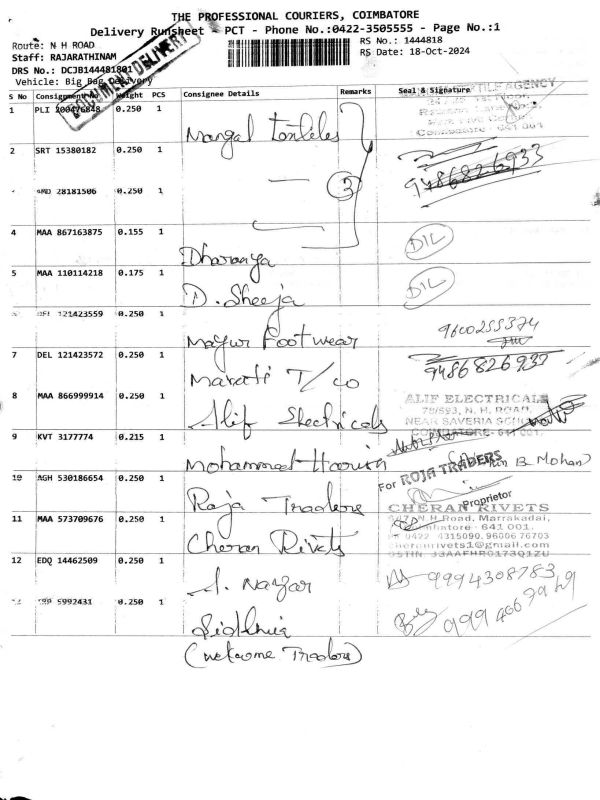 THE PROFESSIONAL COURIERS, COIMBATORE
Delivery Runsheet - PCT - Phone No.:0422-3505555 - Page No.:1
Route: N H ROAD
RS No.: 1444818
Staff: RAJARATHINAM
RS Date: 18-Oct-2024
DRS No.: DCJB144481801
Vehicle: Big Bag Delivery
DOCUMED DELIVERY
S No Consignment No Weight PCS Consignee Details Remarks Seal & Signature
1 PLI 200476848 0.250 1 Mangal
AGENCY
Coimbatore - 641 001
2 SRT 15380182 0.250 1
9486826933
28181506 0.250 1 3
4 MAA 867163875 0.155 1 Dharanya D/L
5 MAA 110114218 0.175 1 D. Sheeja D/L
121423559 0.250 1 Mayur Footwear 9600255374
7 DEL 121423572 0.250 1 Maruti T/co 9486826933
8 MAA 866999914 0.250 1 Alif Electricals
ALIF ELECTRICALS
79/593, N. H. ROAD,
NEAR SAVERIA SCHOOL
COIMBATORE - 641 001.
9 KVT 3177774 0.215 1 Mohammed
B. Mohan)
10 AGH 530186654 0.250 1 Roja Traders
For ROJA TRADERS
Proprietor
11 MAA 573709676 0.250 1 Cheran Rivets
CHERAN RIVETS
N.H.Road, Marrakadai,
Coimbatore - 641 001.
0422 4315090, 96006 76703
cheranrivets1@gmail.com
GSTIN: 33AAFHR0173Q1ZU
12 EDQ 14462509 0.250 1 A. Nazar 9994308783
5992431 0.250 1
(Welcome Traders)